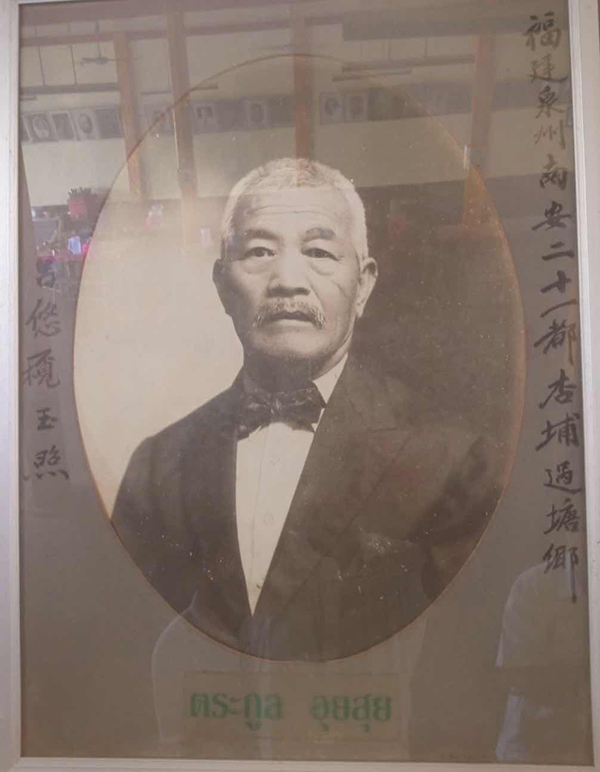 福建泉州南安二十一都杏埔過塘鄉
悠欖玉照
ตระกูล อุยสุย